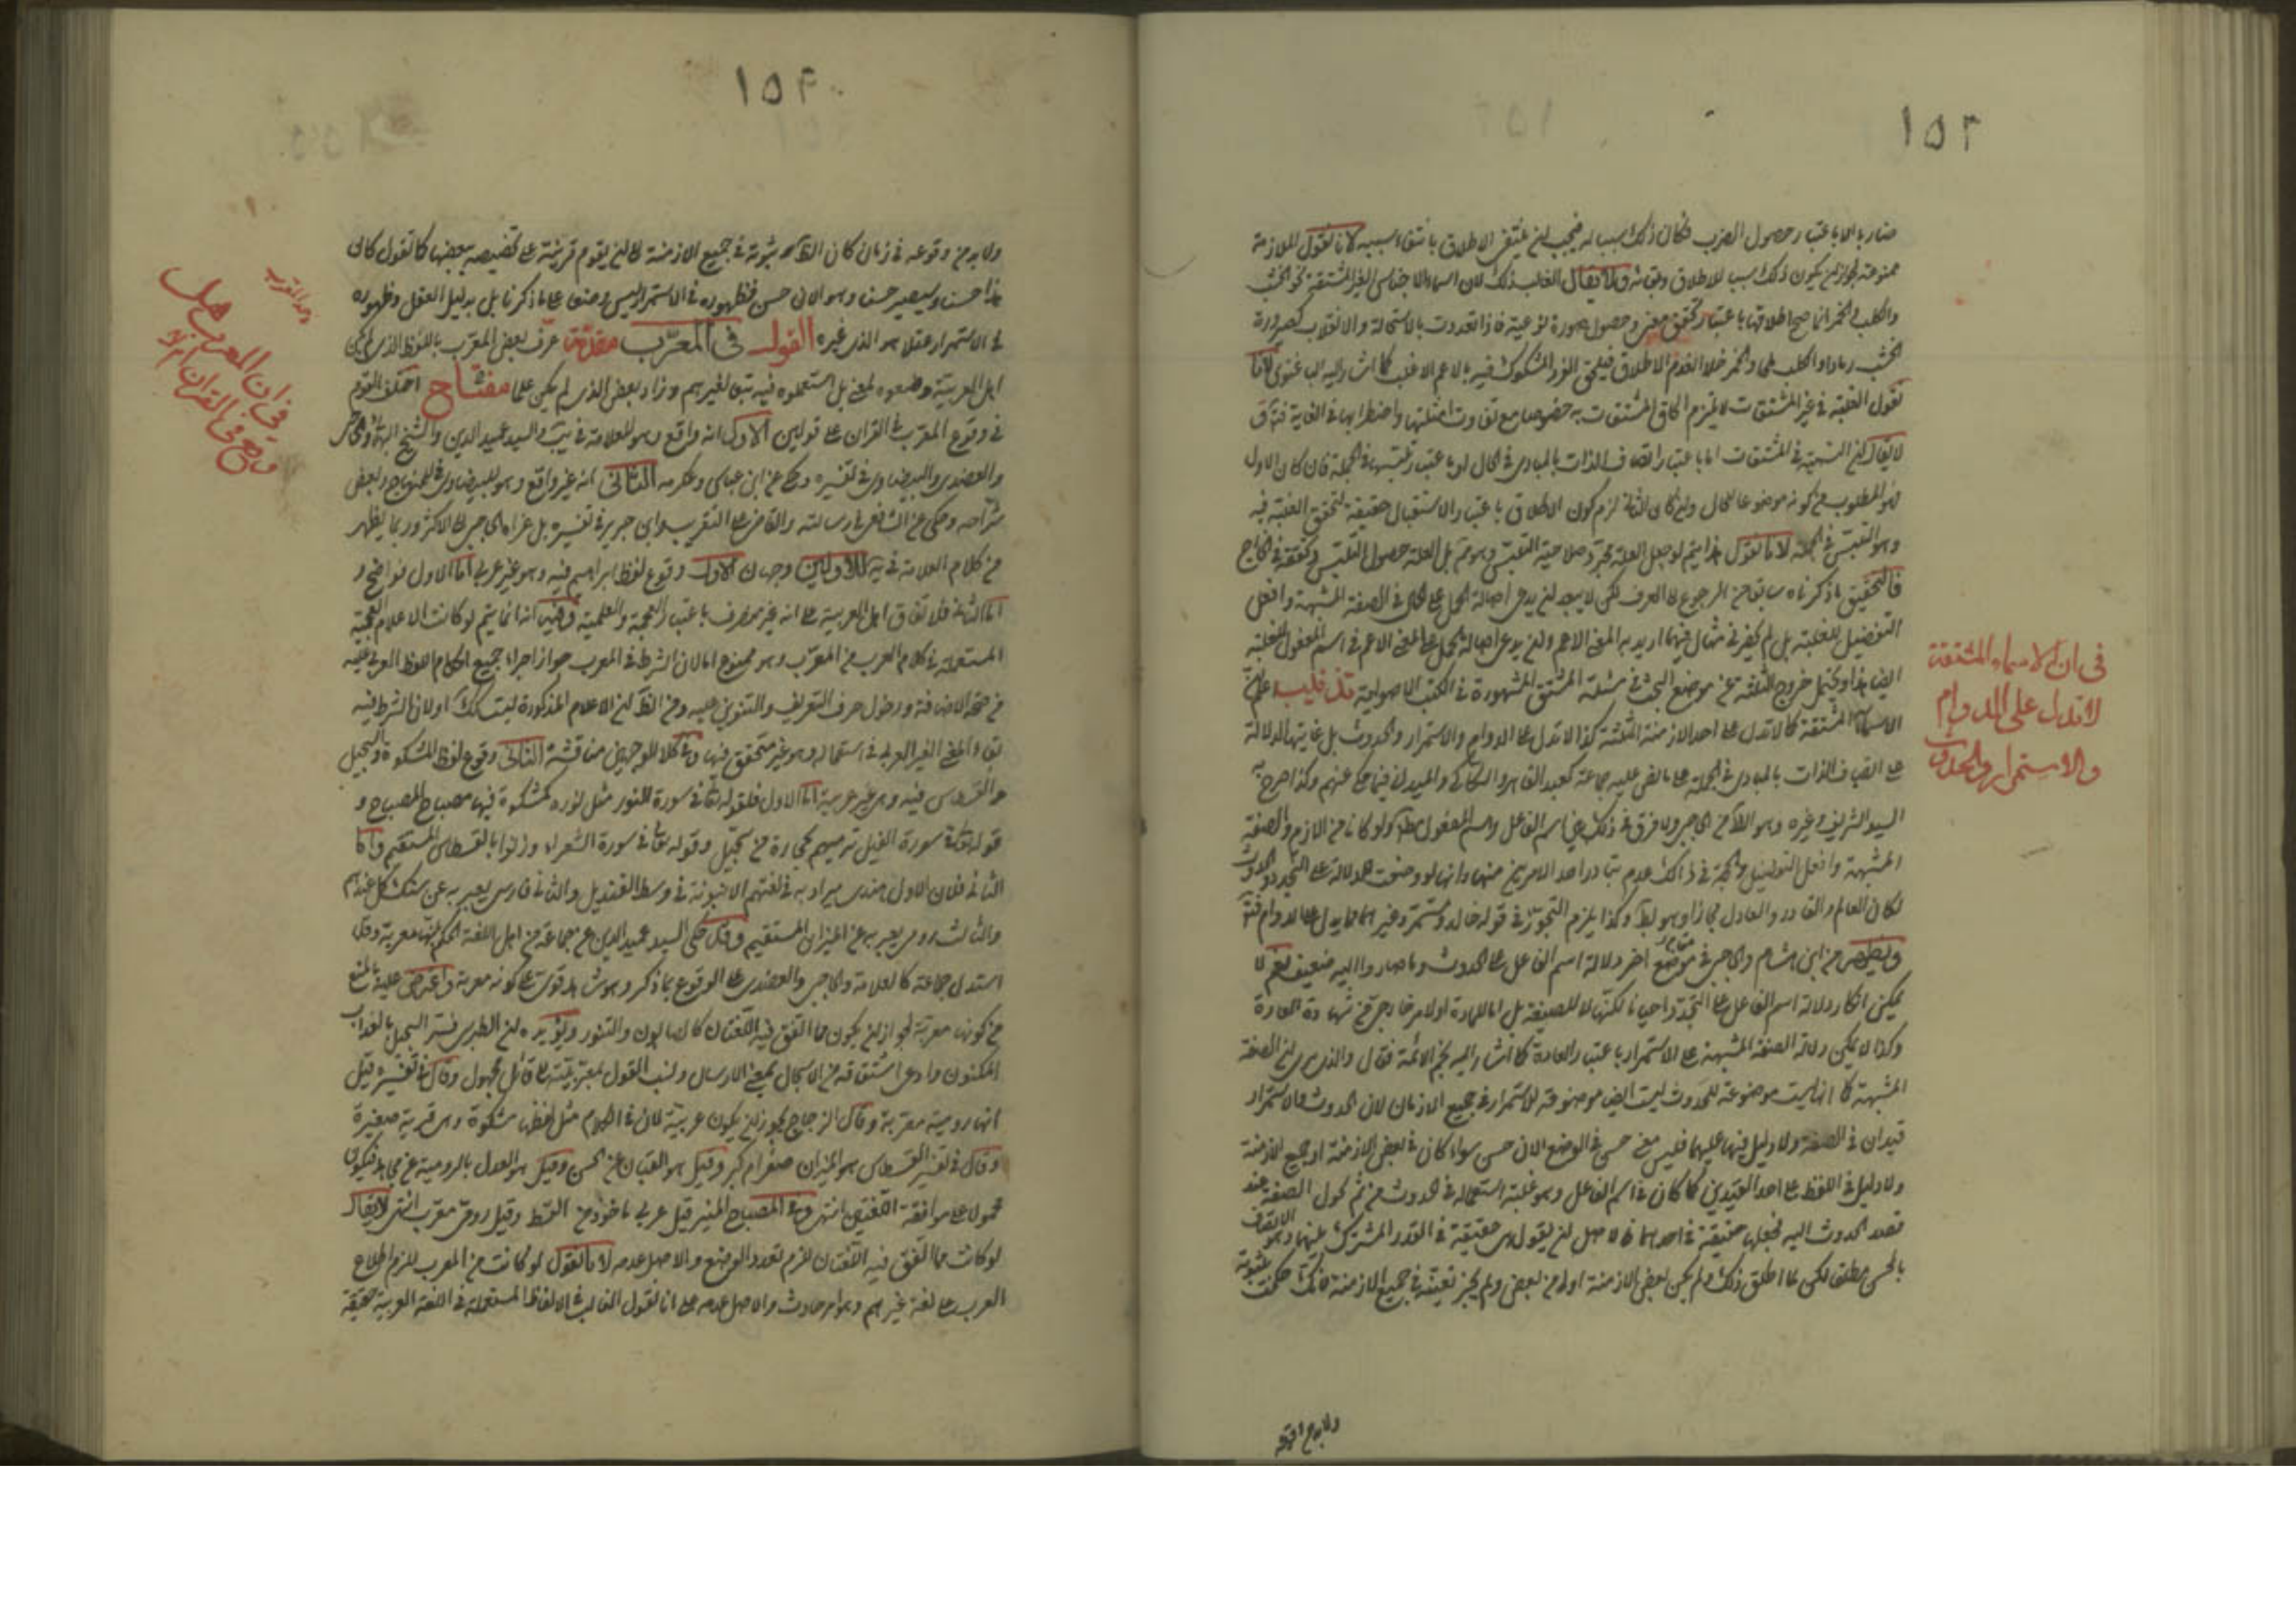 ١٥٣
ضاربا الا باعتبار حصول الضرب فكان ذلك سببا له فيجب ان ينتفي الاطلاق بانتفاء سببه لانا نقول الملازمة
ممنوعة لجواز ان يكون ذلك سببا للاطلاق ولا يقال الغالب ذلك لان اسماء الاجناس الغير المشتقة نحو الخشب
والكلب والخمر انما صح اطلاقها باعتبار تحقق معنى وحصول صورة نوعية فاذا تعددت بالاستحالة والانقلاب كصيرورة
الخشب رمادا والكلب ملحا والخمر خلا انعدم الاطلاق فيلحق الفرد المشكوك فيه بالاعم الاغلب كما اشار اليه لانا
نقول الغلبة في غير المشتقات لا يلزم الحاق المشتقات به خصوصا مع تفاوت امثلتها واضطرابها في الغاية
لا يقال ان الشبهة في المشتقات اما باعتبار اتصاف الذات بالمبادي في الحال او باعتبار تلبسها في الجملة فان كان الاول
فهو المطلوب من كونه موضوعا للحال وان كان الثاني لزم كون الاطلاق باعتبار الاستقبال حقيقة لتحقق الغلبة فيه
وهو التلبس في الجملة لانا نقول هذا يتم لو جعل العلة مجرد صلاحية التلبس وهو مم بل العلة حصول التلبس وتحققه في الخارج
فالتحقيق ما ذكرناه سابقا من الرجوع الى العرف لكن لا يبعد ان يدعى اصالة الحمل على الحال في الصفة المشبهة وافعل
التفضيل للغلبة بل لم يكفر في مثال فيهما اريد به المعنى الاعم وان يدعى اصالة الحمل على المعنى الاعم في اسم المفعول للغلبة
ايضا هذا ويحتمل خروج الثلثة عن موضع البحث في مسئلة المشتق المشهورة في الكتب الاصولية تذنيب اعلم ان
الاسماء المشتقة كما لا تدل على احد الازمنة الثلثة كذا لا تدل على الدوام والاستمرار والحدوث بل غايتها الدلالة
على اتصاف الذات بالمبادي في الجملة على ما نص عليه جماعة كعبد القاهر والسكاكي والميداني فيما حكي عنهم وكذا صرح به
السيد الشريف وغيره وهو اللائح من الحاجبي ولا فرق في ذلك بين اسم الفاعل واسم المفعول ولو كانا من اللازم والصفة
المشبهة وافعل التفضيل والحجة في ذلك عدم تبادر احد الامرين منها وانها لو وضعت للدلالة على التجدد والحدوث
لكان العالم والقادر والعادل مجازا وهو بط وكذا يلزم التجوز في قوله خالد ومستمر وغيرهما مما يدل على الدوام
ويظهر من ابن هشام والحاجبي في موضع اخر دلالة اسم الفاعل على الحدوث وما صاروا اليه ضعيف نعم لا
يمكن انكار دلالة اسم الفاعل على التجدد احيانا لكنها لا للصيغة بل اما للمادة او لامر خارجي من شهادة العادة
وكذا لا يمكن دلالة الصفة المشبهة على الاستمرار باعتبار العادة كما اشار اليه نجم الائمة فقال والذي ارى ان الصفة
المشبهة كما انها ليست موضوعة للحدوث ليست ايضا موضوعة للاستمرار في جميع الازمان لان الحدوث والاستمرار
قيدان في الصفة ولا دليل فيها عليهما فليس معنى حسن في الوضع الا ذي حسن سواء كان في بعض الازمنة او جميع الازمنة
ولا دليل في اللفظ على احد القيدين كما كان في اسم الفاعل وهو غلبة استعماله في الحدوث من ثم تحول الصفة عند
قصد الحدوث اليه فجعلها حقيقة في احدهما لا اصل ان يقول هي حقيقة في القدر المشترك بينهما وهو الاتصاف
بالحسن مطلقا لكن لما اطلق ذلك ولم يكن بعض الازمنة اولى من بعض ولم يجز نفيه في جميع الازمنة لانك حكمت بثبوته
ولا بد من وقوعه
في ان الاسماء المشتقة
لا تدل على الدوام
والاستمرار والحدوث
١٥٤
ولا بد من وقوعه في زمان كان الظاهر ثبوته في جميع الازمنة الى ان يقوم قرينة على تخصيصه ببعضها كما تقول كان
هذا حسنا وسيصير حسنا وهو الان حسن فظهوره في الاستمرار ليس وضعا على ما ذكرنا بل بدليل العقل وظهوره
في الاستمرار عقلا هو الذي غيره القول في المعرّب مقدمة عرف بعض المعرب باللفظ الذي لم يكن
اهل العربية وضعوه لمعنى بل استعملوه فيه تبعا لغيرهم وزاد بعض الذي لم يكن علما مفتاح اختلف القوم
في وقوع المعرب في القران على قولين الاول انه واقع وهو للعلامة في يب والسيد عميد الدين والشيخ البهائي والحاجبي
والعضدي والبيضاوي في تفسيره وحكي عن ابن عباس وعكرمه الثاني انه غير واقع وهو للبيضاوي في المنهاج وبعض
شراحه وحكي عن الشافعي في رسالته والقاضي في التقريب وابن جرير في تفسيره بل عزاه الحاجبي الى الاكثر وربما يظهر
من كلام العلامة في يه للاولين وجهان الاول وقوع لفظ ابراهيم فيه وهو غير عربي اما الاول فواضح و
اما الثاني فلاتفاق اهل العربية على انه غير منصرف باعتبار العجمة والعلمية وفيه انه انما يتم لو كانت الاعلام العجمية
المستعملة في كلام العرب من المعرب وهو ممنوع اما لان الشرط في المعرب جواز اجراء جميع احكام اللفظ العربي عليه
من صحة الاضافة ودخول حرف التعريف والتنوين عليه ومن الظاهر ان الاعلام المذكورة ليست كك او لان الشرط فيه
بقاء المعنى الغير العربي في استعماله وهو غير متحقق فيها وفي كلا الوجهين مناقشة الثاني وقوع لفظ المشكوة والسجيل
والقسطاس فيه وهي غير عربية اما الاول فلقوله تعالى في سورة النور مثل نوره كمشكوة فيها مصباح المصباح و
قوله تعالى في سورة الفيل ترميهم بحجارة من سجيل وقوله تعالى في سورة الشعراء وزنوا بالقسطاس المستقيم واما
الثاني فلان الاول هندي يراد به في لغتهم الانبوبة في وسط القنديل والثاني فارسي يعبر به عن سنك كل عندهم
والثالث رومي يعبر به عن الميزان المستقيم وقد حكى السيد عميد الدين عن جماعة من اهل اللغة الحكم بانها معربة وقد
استدل جماعة كالعلامة والحاجبي والعضدي على الوقوع بما ذكر وهو شاهد قوي على كونه معربة واعترض عليه بالمنع
من كونها معربة لجواز ان يكون مما اتفق فيه اللغتان كالصابون والتنور ويؤيده ان الطبرسي فسر السجيل بالعذاب
المكنون وادعى اشتقاقه من الاسجال بمعنى الارسال ونسب القول بمعربيته الى قائل مجهول وقال في تفسيره قيل
انها رومية معربة وقال الزجاج يجوز ان يكون عربية لان في الكلام مثل لفظها شكوة وهي قربة صغيرة
وقال في تفسير القسطاس هو الميزان صغر ام كبر وقيل هو القبان عن الحسن وقيل هو العدل بالرومية عن مجاهد فيكون
محمولا على موافقة اللغتين انتهى وفي المصباح المنير قيل عربي ماخوذ من القسط وقيل رومي معرب انتهى لا يقال
لو كانت مما اتفق فيه اللغتان لزم تعدد الوضع والاصل عدمه لانا نقول لو كانت من المعرب للزم اطلاع
العرب على لغة غيرهم وهو امر حادث والاصل عدمه على انا نقول الغالب في الالفاظ المستعملة في اللغة العربية حقيقة
في ان المعرب هل
واقع في القران ام لا